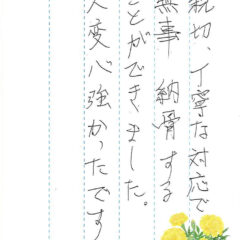 親切、丁寧な対応で
無事 納骨する
ことができました。
大変心強かったです